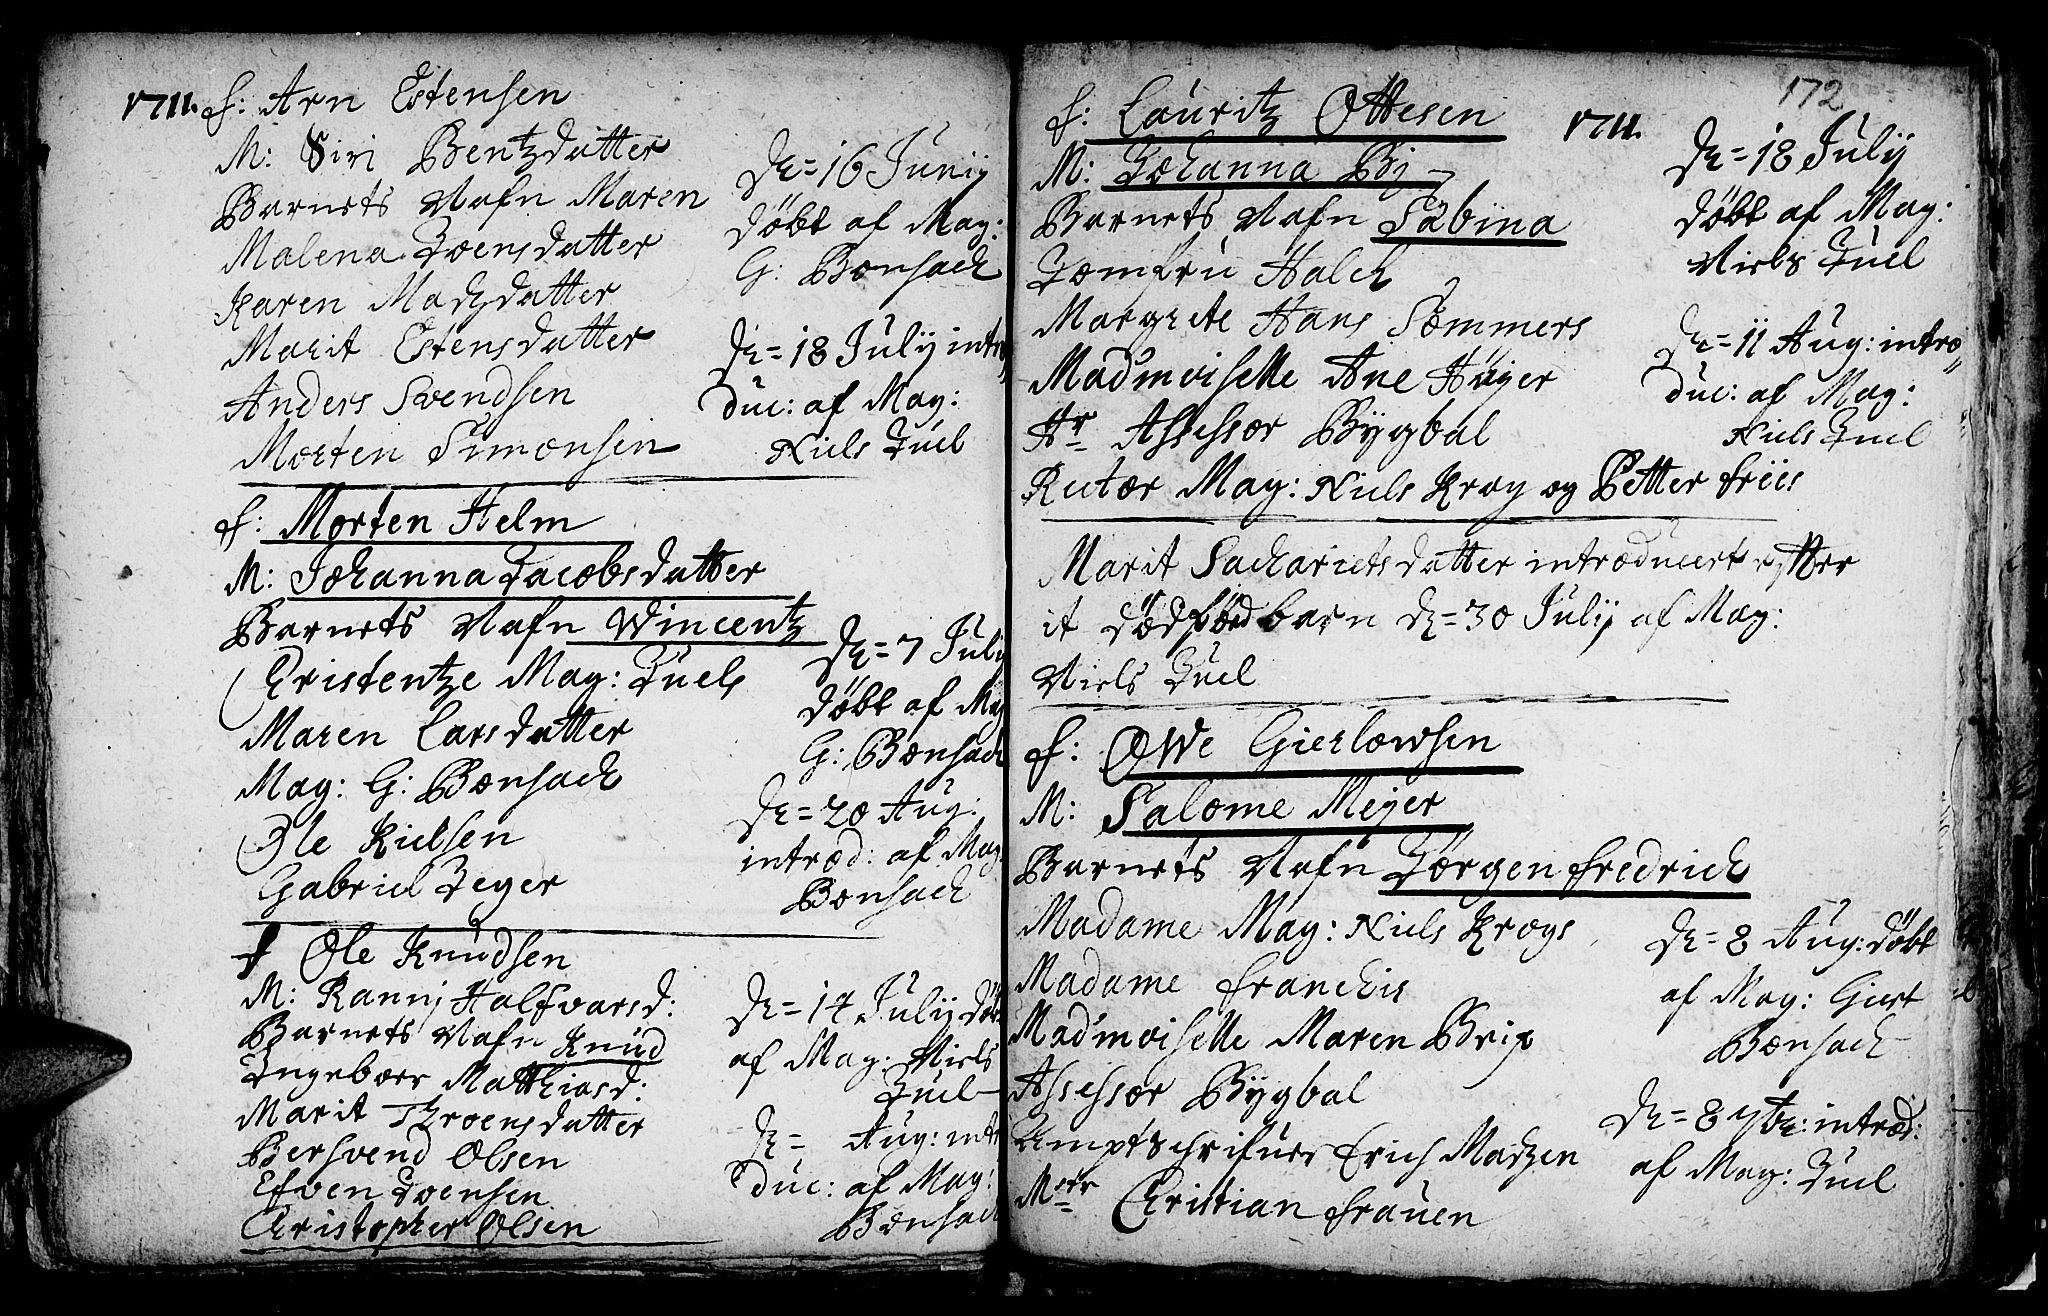 1711. f: Arn Estensen
M: Siri Bentzdatter
Barnets Nafn Maren
Malena Joensdatter
Karen Madzdatter
Marit Estensdatter
Anders Svendsen
Morten Simonsen
D = 16 Junij
døbt af Mag:
G: Bonsach
D = 18 July intro
duc: af Mag:
Niels Juel
f: Morten Helm
M: Johanna Jacobsdatter
Barnets Nafn Wincentz
Cristentze Mag: Juels
Maren Larsdatter
Mag: G: Bonsach
Ole Kielsen
Gabriel Jeger
D = 7 July
døbt af Mag
G: Bonsach
D = 20 Aug:
introd: af Mag
Bonsach
f Ole Knudsen
M: Ranni Halfvarsd:
Barnets Nafn Knud
Ingeboer Matthiasd:
Marit Throensdatter
Bersvend Olsen
Efven Joensen
Christopher Olsen
D = 14 July døbt
af Mag: Niels
Juel
D = Aug: intr
duc: af Mag:
Bonsach
172
1711.
f: Lauritz Ottesen
M: Johanna By
Barnets Nafn Sabina
Jomfru Halch
Margrete Hans Sommers
Mad'moiselle Ane Høyer
Hr Assessor Bygbal
Rector Mag: Niels Krog og Petter friis
D = 18 July
døbt af Mag:
Niels Juel
D = 11 Aug: intro
duc: af Mag:
Niels Juel
Marit Sacharietsdatter introducert efter
it dødfød barn D = 30 July af Mag:
Niels Juel
f: Owe Gierlowsen
M: Salome Meyer
Barnets Nafn Jørgen fredrich
Madame Mag: Niels Krogs
Madame franckis
Mad'moiselle Maren Brix
Assessor Bygbal
Amptschrifuer Erich Madzen
Mosr Christian frauen
D = 8 Aug: døbt
af Mag: Giert
Bonsach
D = 8 7br: introd:
af Mag: Juel